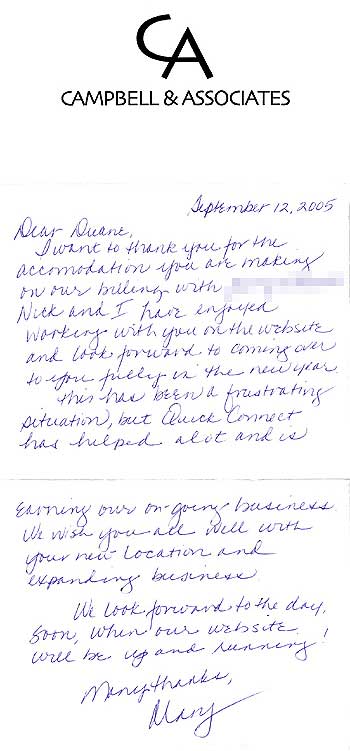 CA
CAMPBELL & ASSOCIATES
September 12, 2005
Dear Duane,
I want to thank you for the
accomodation you are making
on our billing with
Nick and I have enjoyed
working with you on the website
and look forward to coming over
to you fully in the new year.
This has been a frustrating
situation, but Quick Connect
has helped alot and is
Earning our on-going business.
We wish you all well with
your new location and
expanding business.
We look forward to the day,
soon, when our website
will be up and running!
Many thanks,
Mary